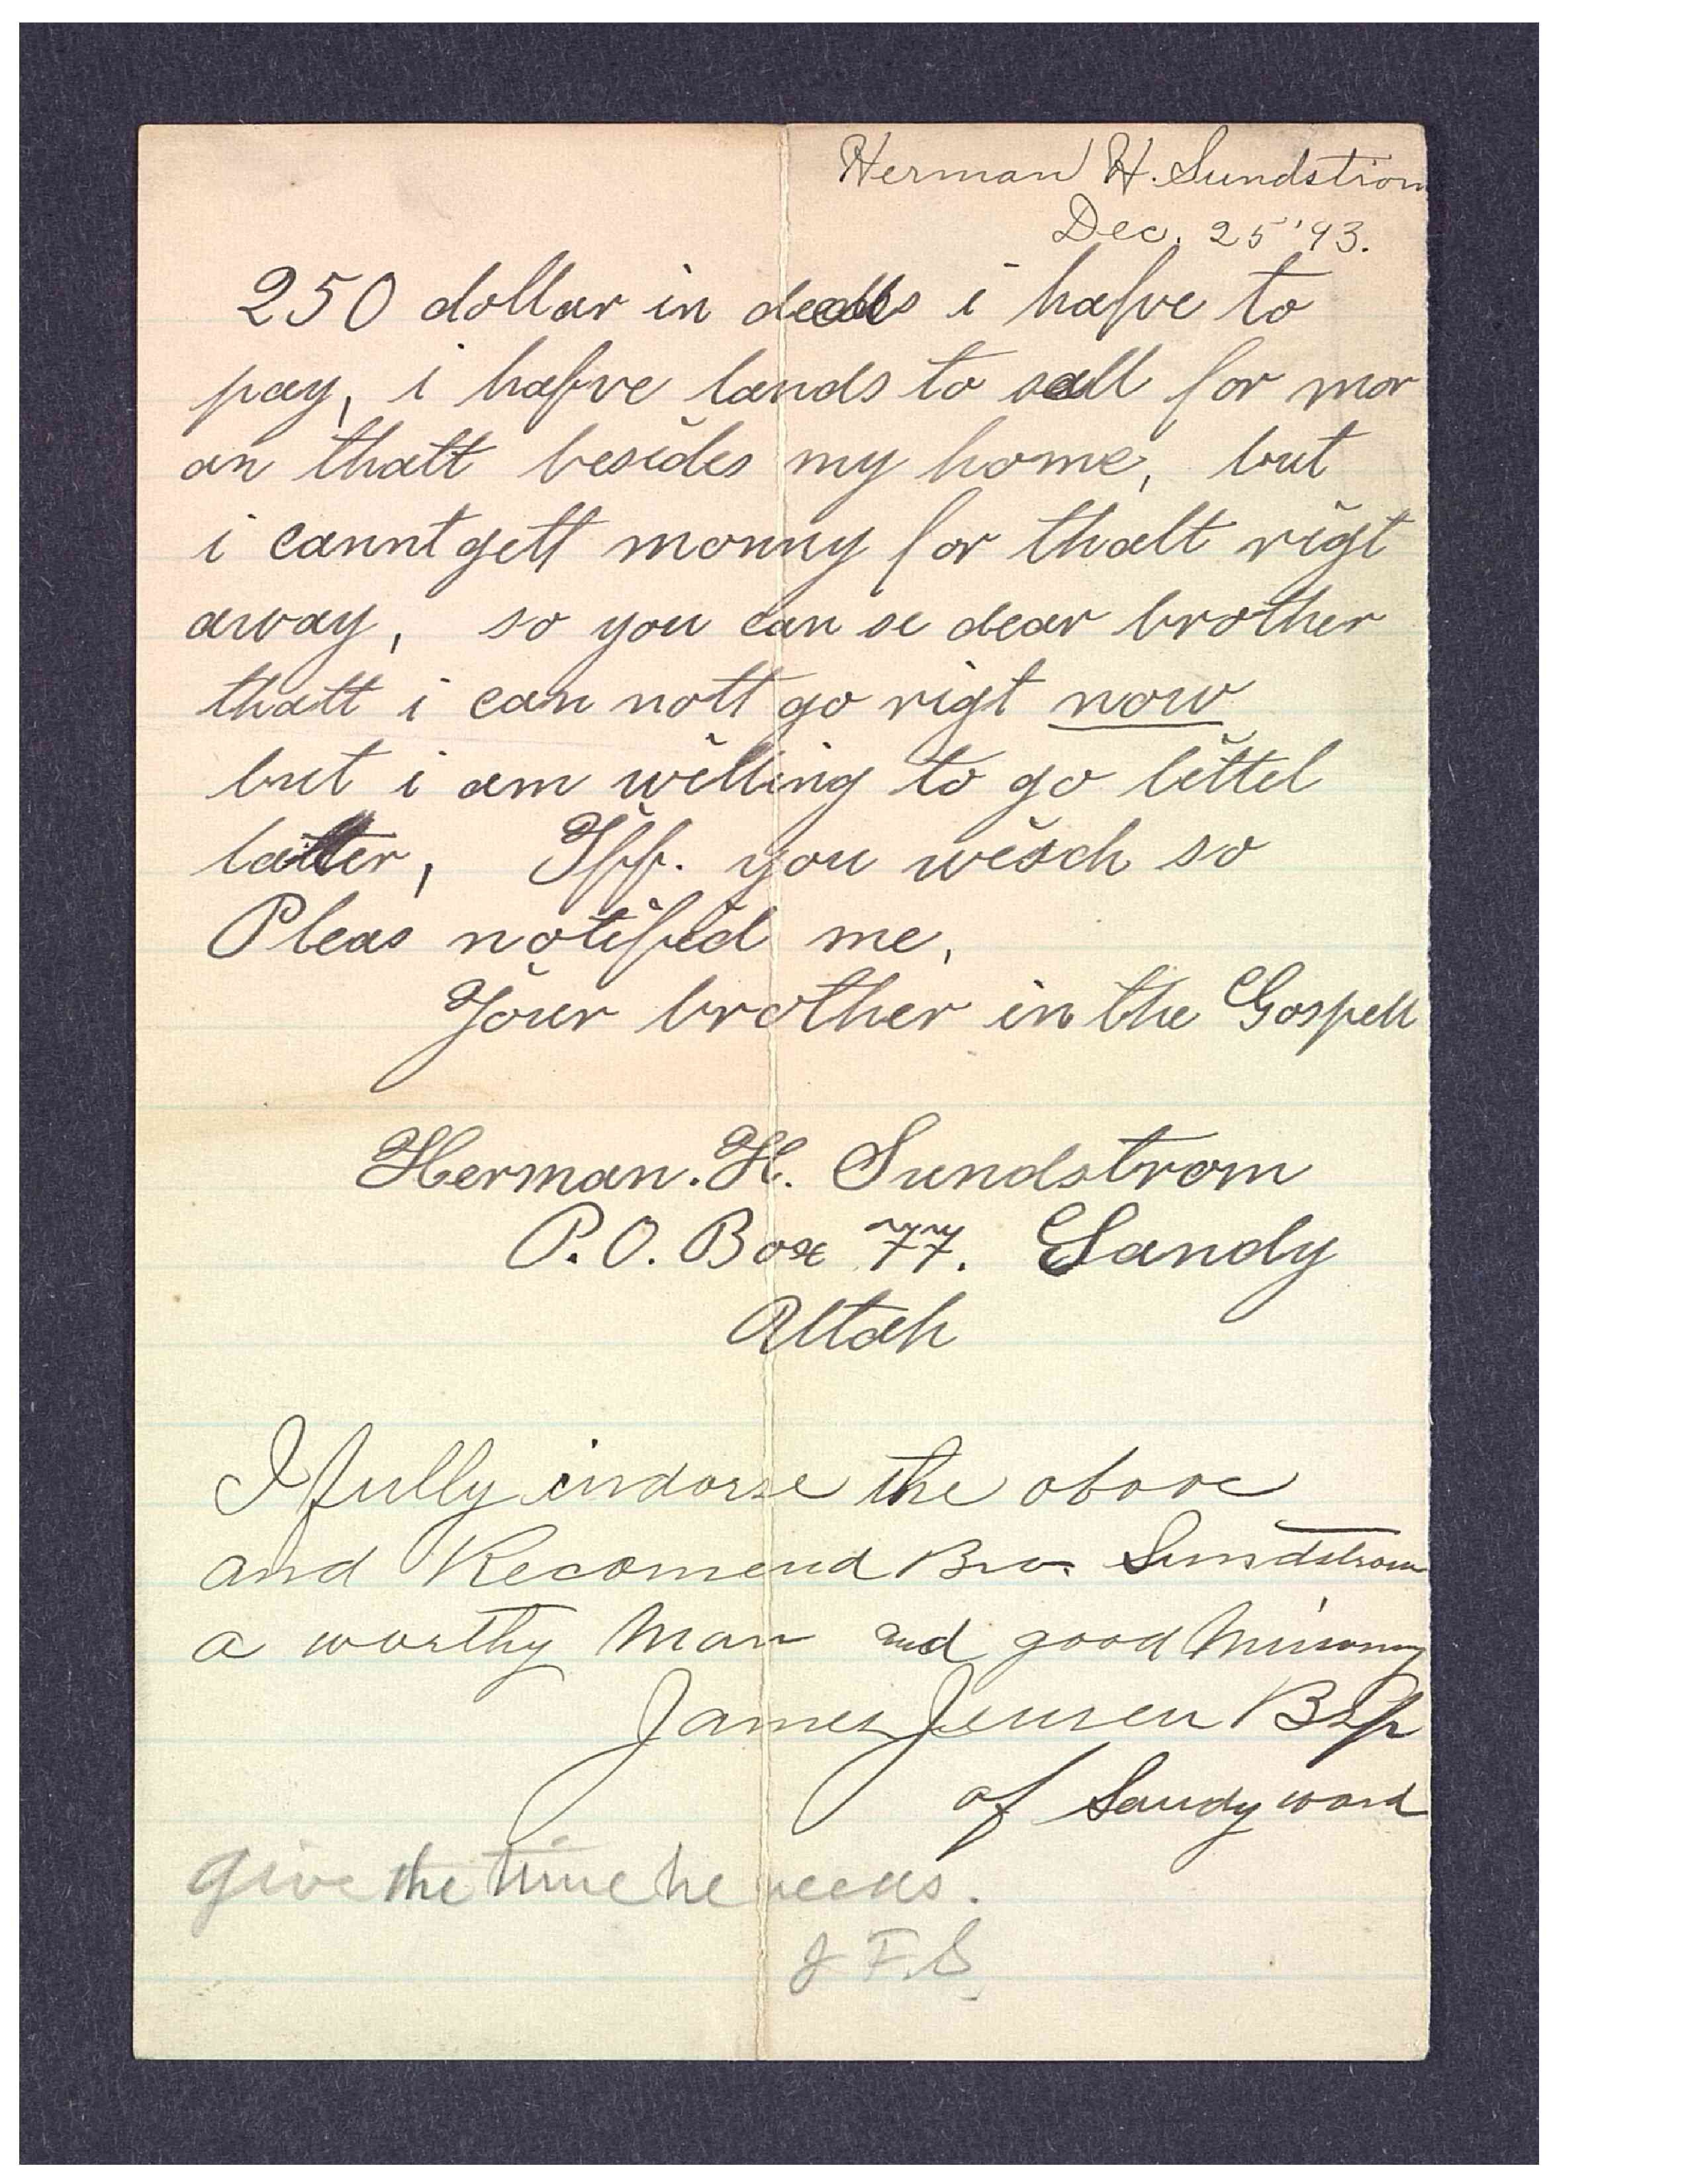 Herman H. Sundstrom
Dec. 25 '93.
250 dollar in i hafve to
pay, i hafve lands to sell for mor
an thatt besides my home, but
i cannt gett monny for thatt rigt
away, so you can se dear brother
thatt i can nott go rigt now
but i am willing to go littel
latter, Iff. you wisch so
Pleas notified me,
Your brother in the Gospell
Herman. H. Sundstrom
P.O. Box 77. Sandy
Utah
I fully indorse the above
and Recomend Bro. Sundstrom
a worthy Man and good Missionary
James Jensen Bsp
of Sandy ward
Give the time he needs.
J F. S.